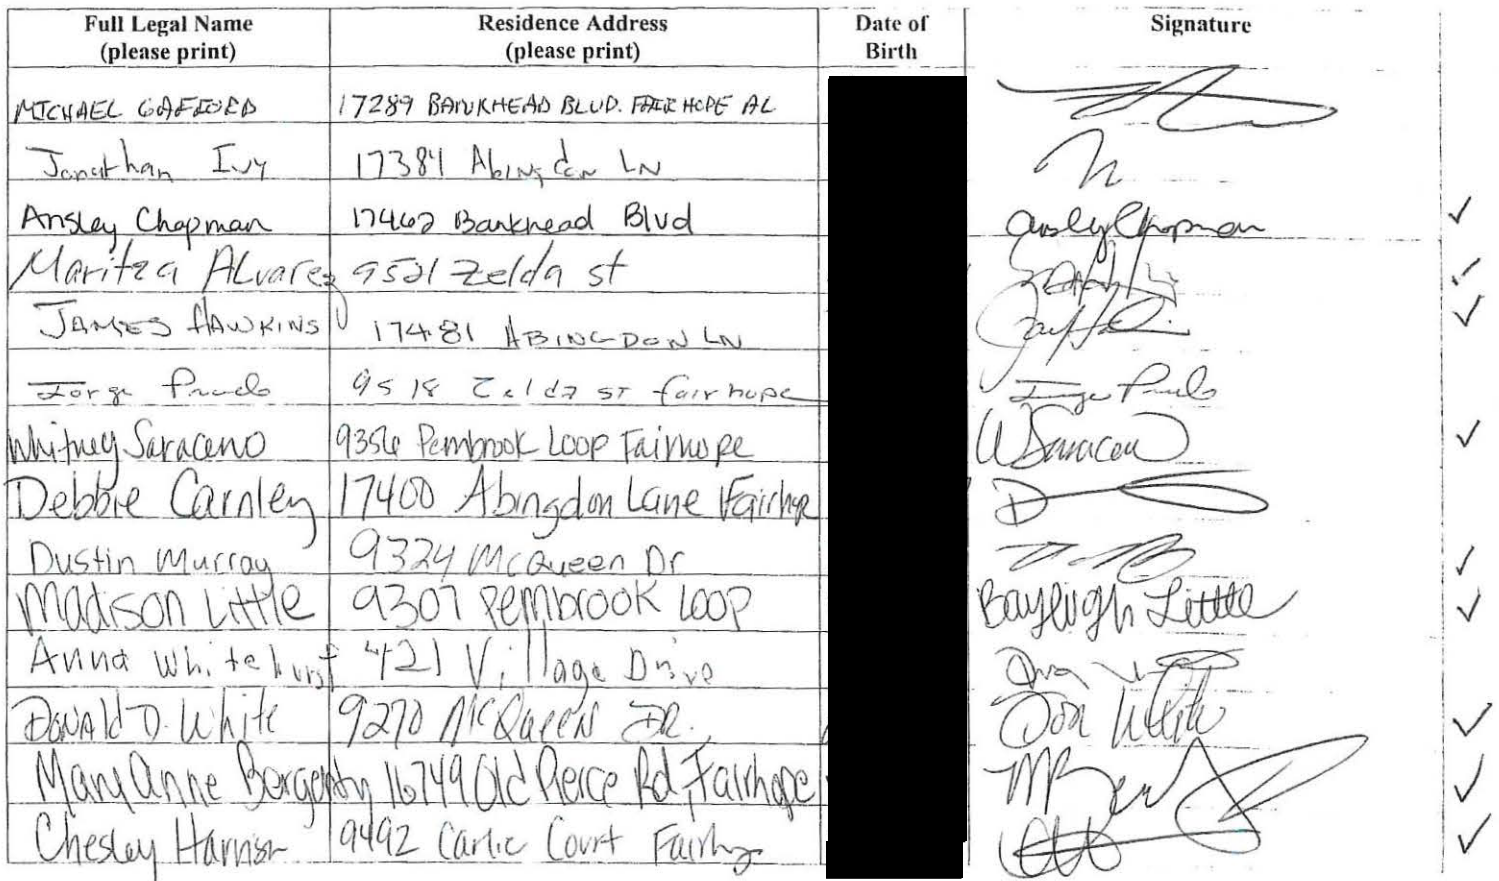 Full Legal Name (please print) Residence Address (please print) Date of Birth Signature
MICHAEL GAFFORD 17289 BANKHEAD BLVD. FAIRHOPE AL
Jonathan Ivy 17384 Abingdon LN
Ansley Chapman 17462 Bankhead Blvd Ansley Chapman ✓
Maritza Alvarez 9521 Zelda st ✓
JAMES HAWKINS 17481 ABINGDON LN ✓
Jorge 9518 Zelda ST fairhope Jorge
Whitney Saraceno 9356 Pembrook Loop Fairhope WSaraceno ✓
Debbie Carnley 17400 Abingdon Lane Fairhope
Dustin Murray 9324 McQueen Dr ✓
Madison Little 9307 Pembrook Loop Bayleigh Little ✓
Anna Whitehurst 421 Village Drive
DONAld D. White 9270 McQueen DR. Don White ✓
Mary Anne 16749 Old Pierce Rd, Fairhope ✓
Chesley Harrison 9492 Court ✓